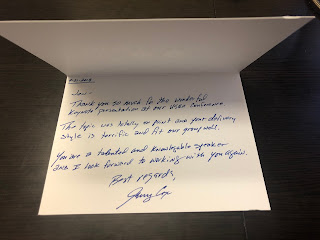 Thank you so much for the wonderful
keynote presentation at our user conference.
The topic was totally on point and your delivery
style is terrific and fit our group well.
You are a talented and knowledgable speaker
and I look forward to working with you again.
Best regards,
Jerry Cox